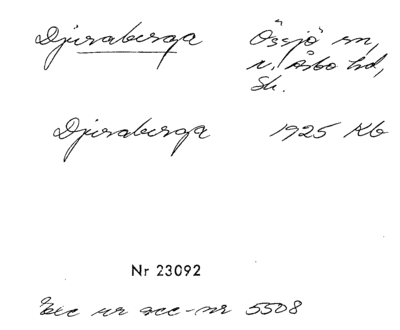 Djuraberga Össjö sn,
n. Åsbo hd,
Sk.
Djuraberga 1925 Kb
Nr 23092
Exc ur acc-nr 5508